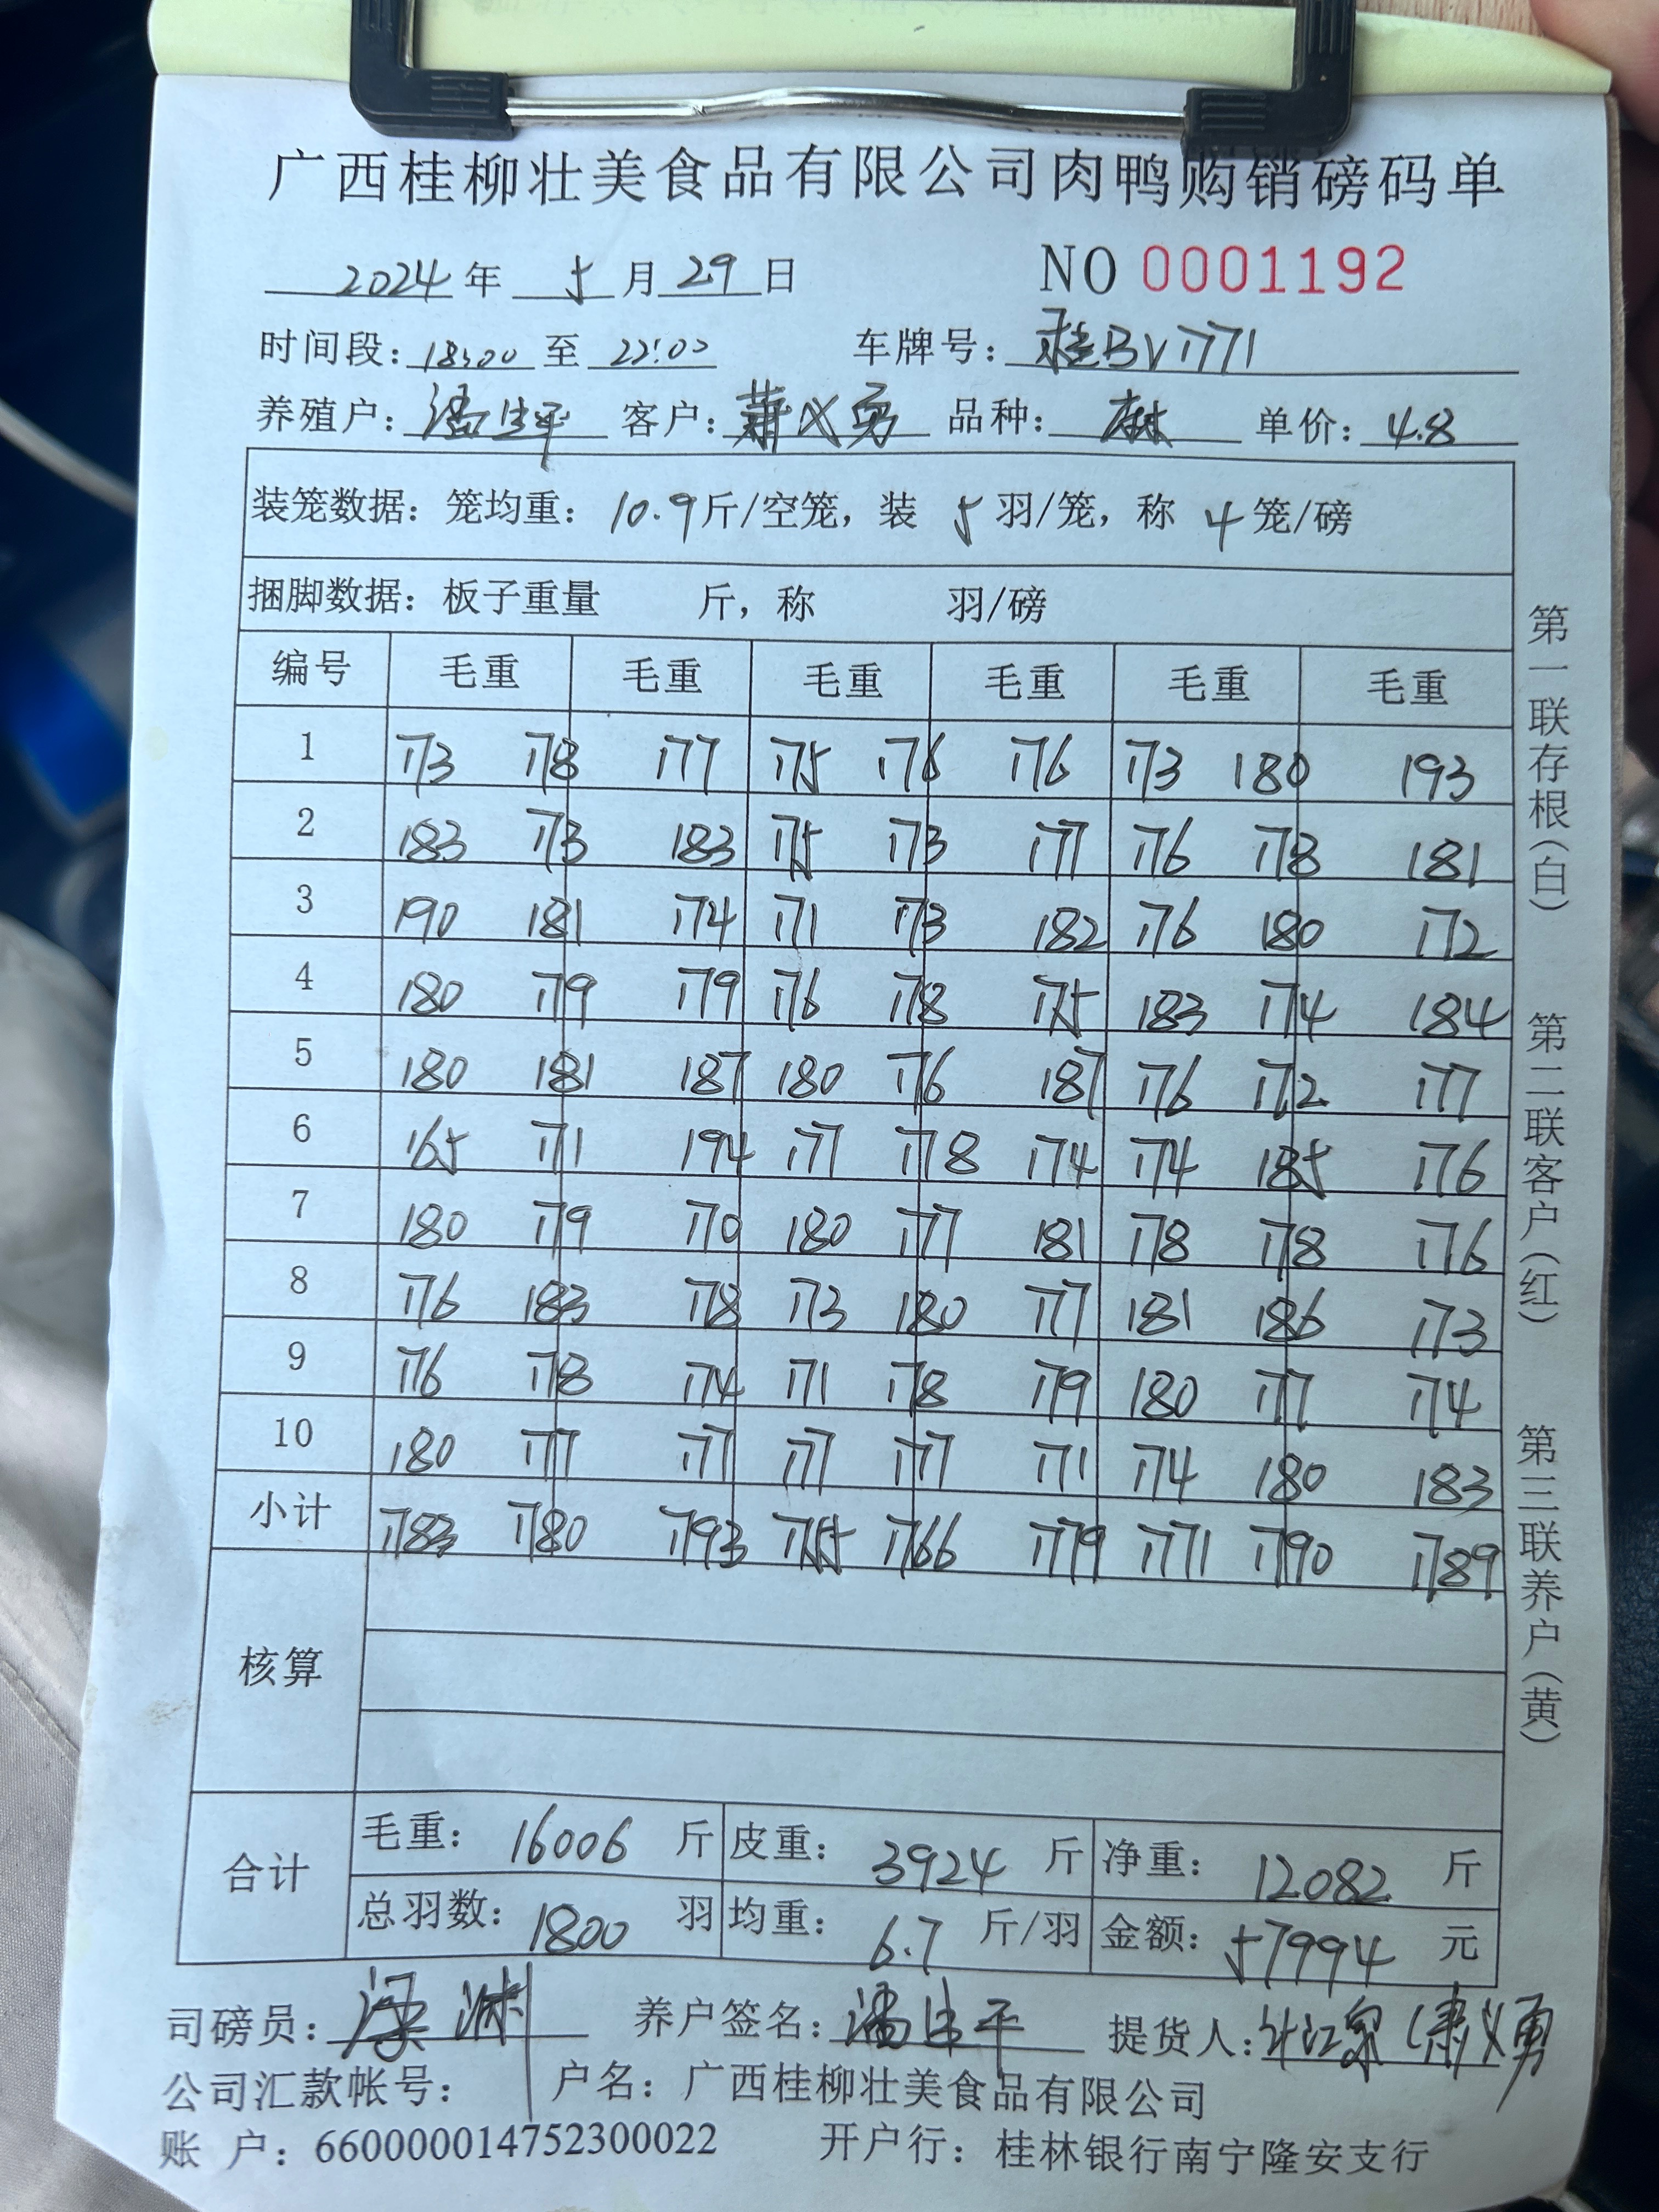 广西桂柳壮美食品有限公司肉鸭购销磅码单
2024年 5月29日 NO 0001192
时间段：18:00 至 22:00 车牌号：桂BV1771
养殖户：潘生平 客户：萧义勇 品种：麻 单价：4.8
装笼数据：笼均重：10.9斤/空笼，装 5 羽/笼，称 4 笼/磅
捆脚数据：板子重量 斤，称 羽/磅
编号 毛重 毛重 毛重 毛重 毛重 毛重
1 173 178 177 175 176 176 173 180 193
2 183 173 183 175 173 177 176 178 181
3 190 181 174 171 173 182 176 180 172
4 180 179 179 176 178 175 183 174 184
5 180 181 187 180 176 187 176 172 177
6 165 171 194 177 178 174 174 185 176
7 180 179 170 180 177 181 178 178 176
8 176 183 178 173 180 177 181 186 173
9 176 178 174 171 178 179 180 177 174
10 180 177 177 177 177 171 174 180 183
小计 1783 1780 1793 1755 1766 1779 1771 1790 1789
核算
合计 毛重：16006 斤 皮重：3924 斤 净重：12082 斤
总羽数：1800 羽 均重：6.7 斤/羽 金额：57994 元
司磅员： 养户签名：潘生平 提货人：
公司汇款帐号： 户名：广西桂柳壮美食品有限公司
账 户：660000014752300022 开户行：桂林银行南宁隆安支行
第一联存根（白） 第二联客户（红） 第三联养户（黄）